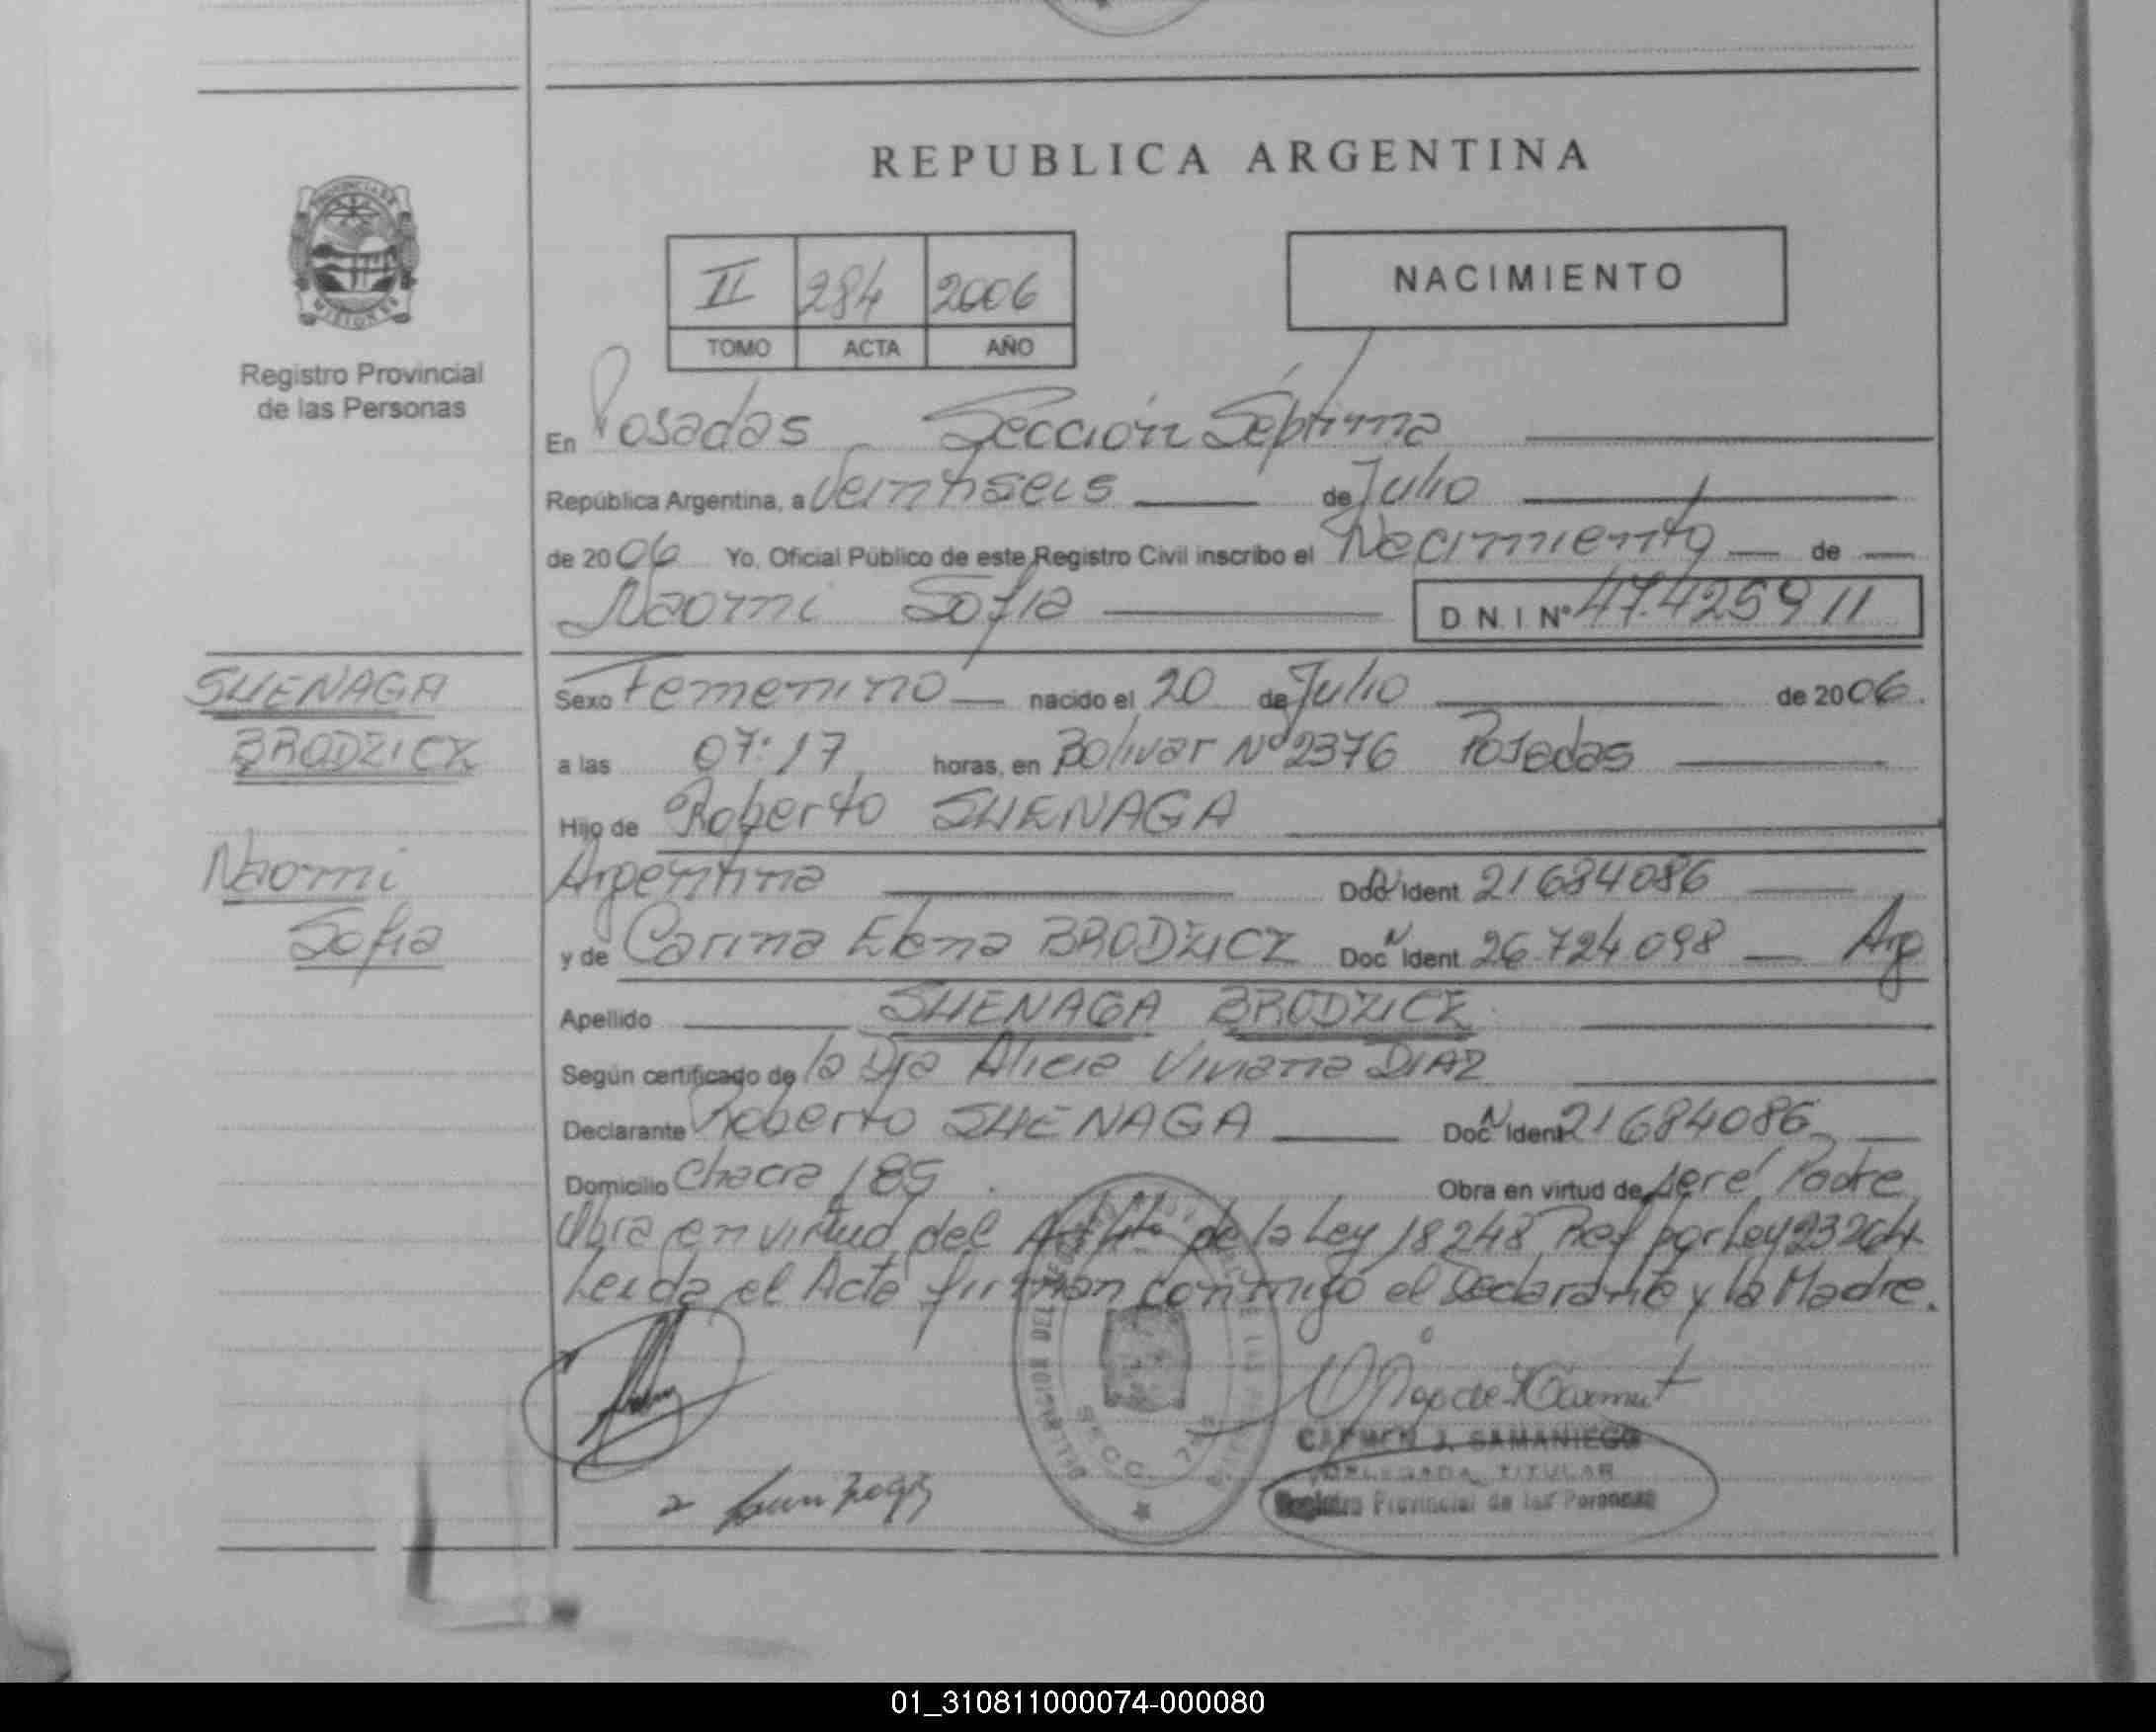 REPUBLICA ARGENTINA
PROVINCIA DE
MISIONES
Registro Provincial
de las Personas
II 284 2006
TOMO ACTA AÑO
NACIMIENTO
En Posadas - Sección Séptima
República Argentina, a Veintiseis de Julio
de 2006 Yo, Oficial Público de este Registro Civil inscribo el Nacimiento de
Naomi Sofia D.N.I Nº 47.425911
SHENAGA
BRODZICZ
Naomi
Sofia
Sexo Femenino nacido el 20 de Julio de 2006.
a las 07:17 horas, en Bolivar Nº 2376 Posadas
Hijo de Roberto SHENAGA
Argentina Doc Ident 21684086
y de Carina Elena BRODZICZ Doc N Ident 26.724.098 Arg
Apellido SHENAGA BRODZICZ
Según certificado de la Dra Alicia Viviana DIAZ
Declarante Roberto SHENAGA Doc N Ident 21684086
Domicilio Chacra 185 Obra en virtud de ser el Padre
Obra en virtud del de la Ley 18248 Ref por Ley 23264
Leida el Acta firman conmigo el Declarante y la Madre.
SECC. 7
CARMEN J. SAMANIEGO
DELEGADA TITULAR
Registro Provincial de las Personas
01_310811000074-000080